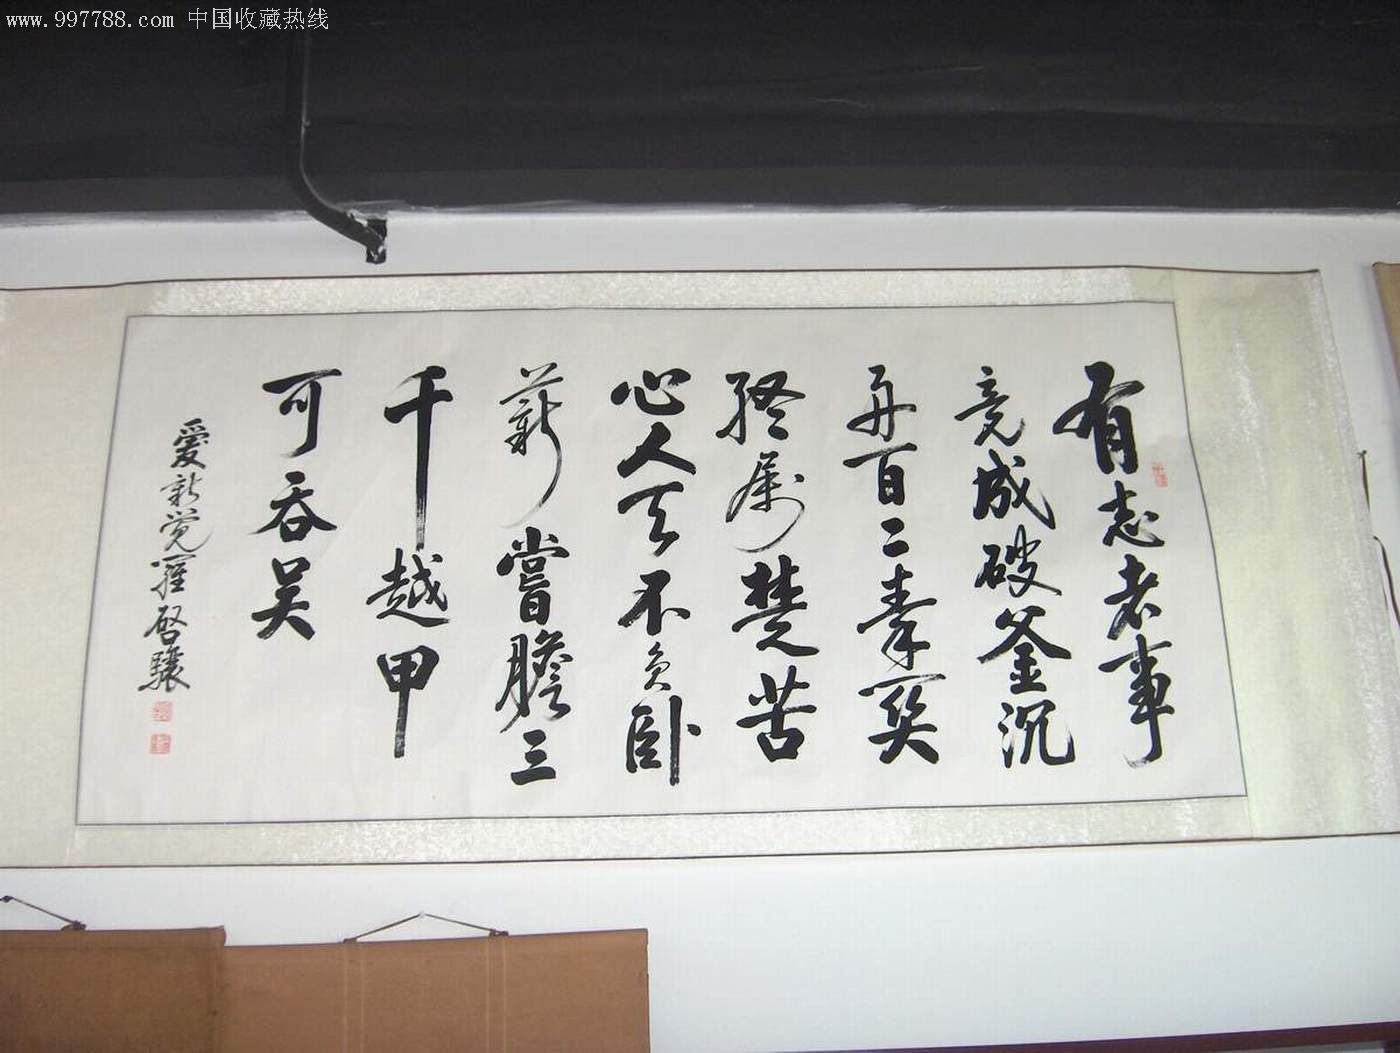 www.997788.com 中国收藏热线
有志者事
竟成破釜沉
舟百二秦关
终属楚苦
心人天不负卧
薪尝膽三
千越甲
可吞吴
爱新觉羅啓驤